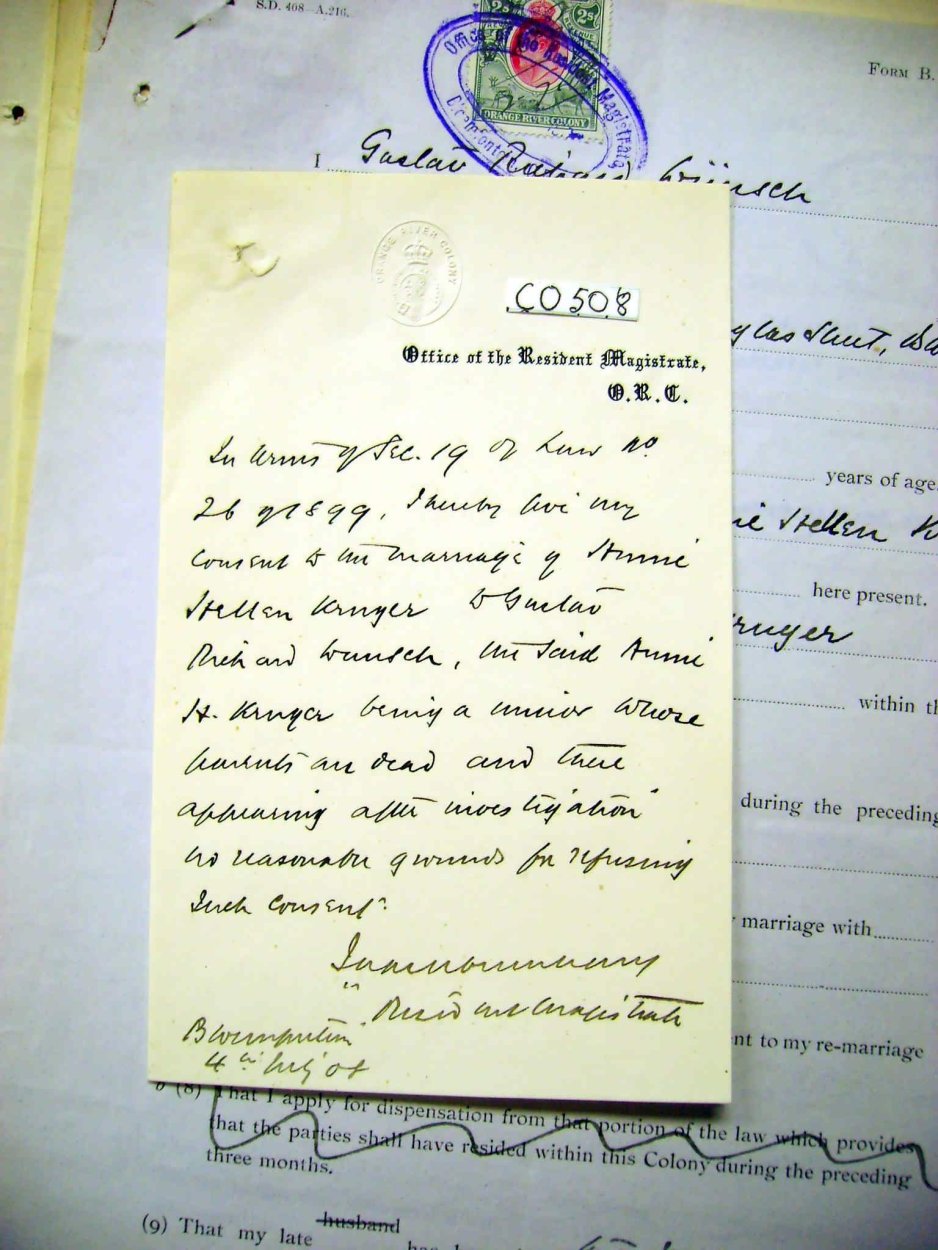 S.D. 408—A.216.
FORM B.
2s 2s
ORANGE RIVER COLONY
Office of the Resident Magistrate
I Gustav Richard Wünsch
ORANGE RIVER COLONY
CO508
Office of the Resident Magistrate,
O.R.C.
In terms of Sec. 19 of Law No
26 of 1899, I hereby give my
consent to the marriage of Annie
Hellen Kruger to Gustav
Richard Wunsch, the said Annie
H. Kruger being a minor whose
parents are dead and there
appearing after investigation
no reasonable grounds for refusing
such consent.
Resident Magistrate
Bloemfontein
4th July 08
years of age.
Hellen
here present.
Kruger
within th
during the preceding
marriage with
nt to my re-marriage
(8) That I apply for dispensation from that portion of the law which provides
that the parties shall have resided within this Colony during the preceding
three months.
(9) That my late husband